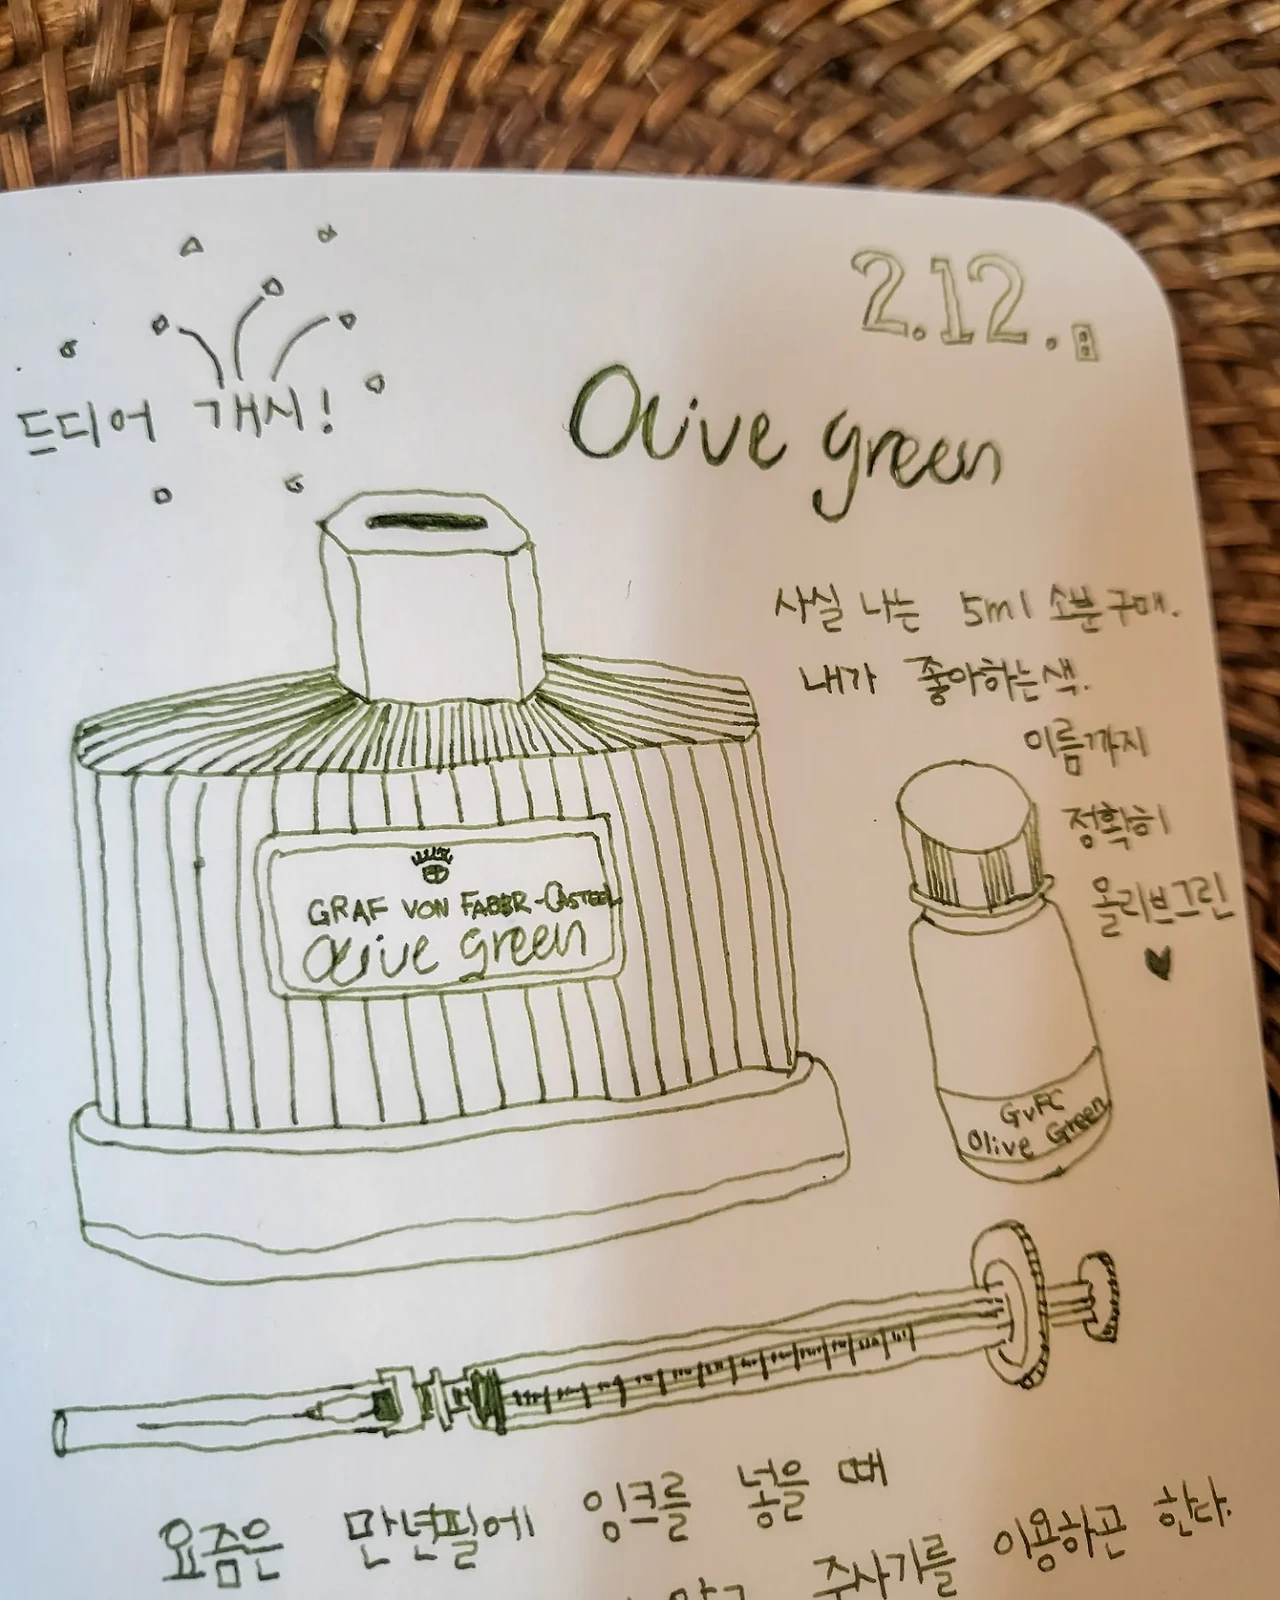 2.12.
드디어 개시!
Olive green
사실 나는 5ml 소분구매.
내가 좋아하는색.
이름까지
정확히
올리브그린
GRAF VON FABER-CASTELL
olive green
GvFC
Olive Green
요즘은 만년필에 잉크를 넣을 때
주사기를 이용하곤 한다.